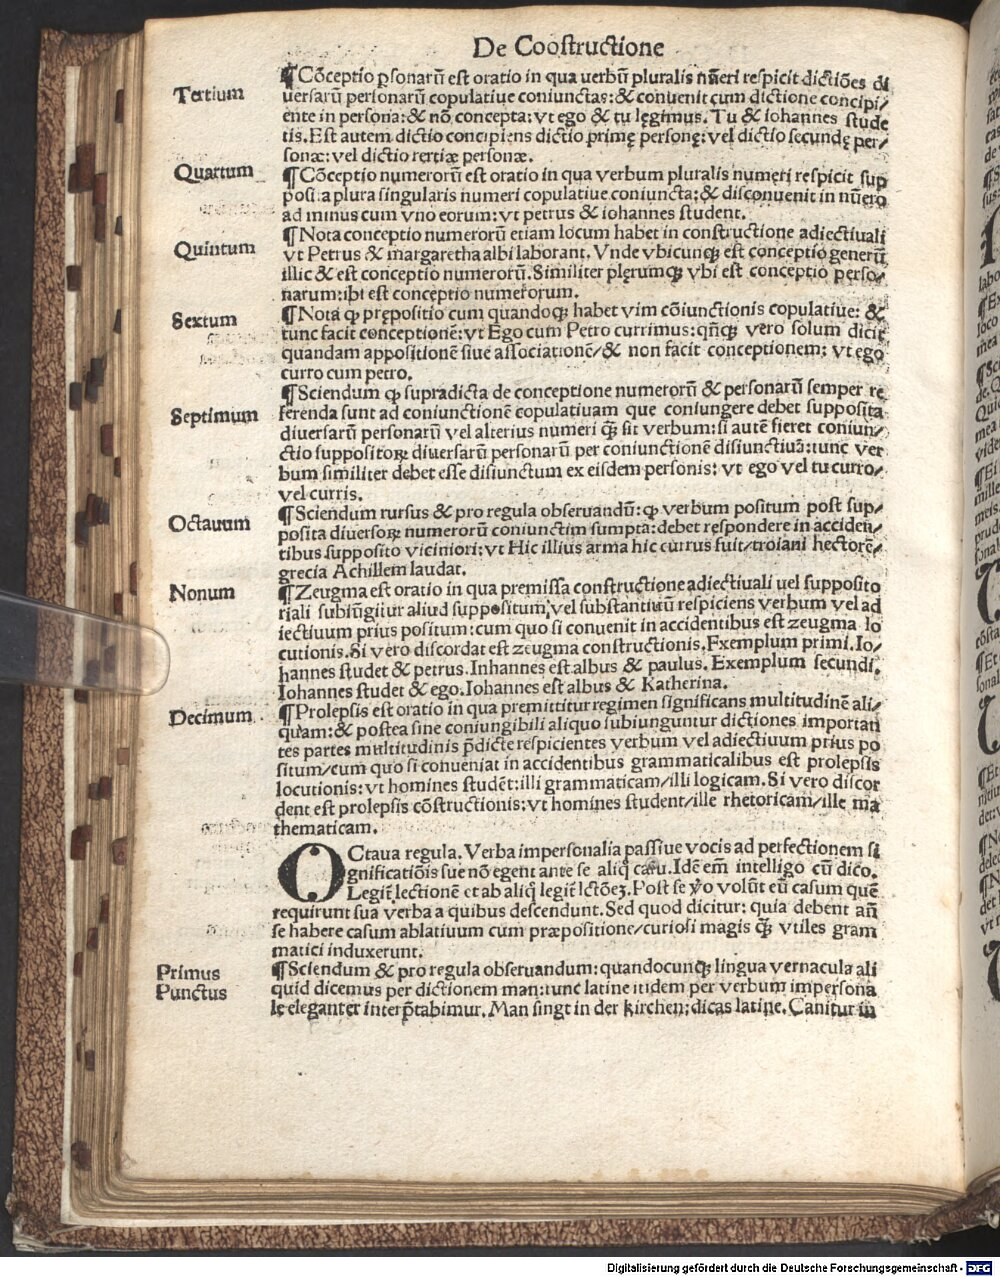 De Coostructione
Tertium
¶Cõceptio ꝑsonarũ est oratio in qua uerbũ pluralis nũeri respicit dictiões di
uersarũ personarũ copulatiue coniunctas: & conuenit cum dictione concipi/
ente in persona: & nõ concepta: vt ego & tu lęgimus. Tu & iohannes stude
tis. Est autem dictio concipiens dictio primę personę: vel dictio secundę per/
sonæ: vel dictio rertiæ personæ.
Quartum
¶Cõceptio numerorũ est oratio in qua verbum pluralis numeri respicit sup
posita plura singularis numeri copulatiue coniuncta: & disconuenit in nũero
ad minus cum vno eorum: vt petrus & iohannes student.
Quintum
¶Nota conceptio numerorũ etiam locum habet in constructione adiectiuali
vt Petrus & margaretha albi laborant. Vnde vbicunqȝ est conceptio generũ
illic & est conceptio numerorũ. Similiter plęrumqȝ vbi est conceptio perso/
narum: ibi est conceptio numerorum.
Sextum
¶Nota ꝙ prępositio cum quandoqȝ habet vim cõiunctionis copulatiue: &
tunc facit conceptionẽ: vt Ego cum Petro currimus: qñqȝ vero solum dicit
quandam appositionẽ siue associationẽ/& non facit conceptionem: vt ego
curro cum petro.
Septimum
¶Sciendum ꝙ supradicta de conceptione numerorũ & personarũ semper re
ferenda sunt ad coniunctionẽ copulatiuam que coniungere debet supposita
diuersarũ personarũ vel alterius numeri qȝ sit verbum: si autẽ fieret coniun/
ctio suppositoꝝ diuersarũ personarũ per coniunctionẽ disiunctiuã: tunc ver
bum similiter debet esse disiunctum ex eisdem personis: vt ego vel tu curro/
vel curris.
Octauum
¶Sciendum rursus & pro regula obseruandũ: ꝙ verbum positum post sup/
posita diuersoꝝ numerorũ coniunctim sumpta: debet respondere in acciden/
tibus supposito viciniori: vt Hic illius arma hic currus fuit/troiani hectorẽ/
grecia Achillem laudat.
Nonum
¶Zeugma est oratio in qua premissa constructione adiectiuali uel supposito
riali subiũgitur aliud suppositum, vel substantiuũ respiciens verbum vel ad
iectiuum prius positum: cum quo si conuenit in accidentibus est zeugma lo
cutionis. Si vero discordat est zeugma constructionis. Exemplum primi. Io/
hannes studet & petrus. Inhannes est albus & paulus. Exemplum secundi.
Iohannes studet & ego. Iohannes est albus & Katherina.
Decimum
¶Prolepsis est oratio in qua premittitur regimen significans multitudinẽ ali/
quam: & postea sine coniungibili aliquo subiunguntur dictiones importan
tes partes multitudinis p̃dicte respicientes verbum vel adiectiuum prius po
situm/cum quo si conueniat in accidentibus grammaticalibus est prolepsis
locutionis: vt homines studẽt: illi grammaticam/illi logicam. Si vero discor
dent est prolepsis cõstructionis: vt homines student/ille rhetoricam/ille ma
thematicam.
OCtaua regula. Verba impersonalia passiue vocis ad perfectionem si
gnificatiõis sue nõ egent ante se aliq̃ casu. Idẽ em̃ intelligo cũ dico.
Legit̃ lectionẽ et ab aliq̃ legit̃ lctõeȝ. Post se ṽo volũt eũ casum quẽ
requirunt sua verba a quibus descendunt. Sed quod dicitur: quia debent añ
se habere casum ablatiuum cum præpositione/curiosi magis qȝ vtiles gram
matici induxerunt.
Primus
Punctus
¶Sciendum & pro regula obseruandum: quandocunqȝ lingua vernacula ali
quid dicemus per dictionem man: tunc latine itidem per verbum impersona
le eleganter interp̃tabimur. Man singt in der kirchen: dicas latine. Canitur in
Digitalisierung gefördert durch die Deutsche Forschungsgemeinschaft - DFG